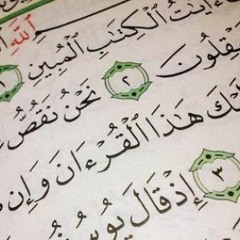 ءَايَٰتُ ٱلْكِتَٰبِ ٱلْمُبِينِ
نَحْنُ نَقُصُّ ٢ ـقِلُونَ
ـكَ هَٰذَا ٱلْقُرْءَانَ وَإِن
٣ إِذْ قَالَ يُوسُ